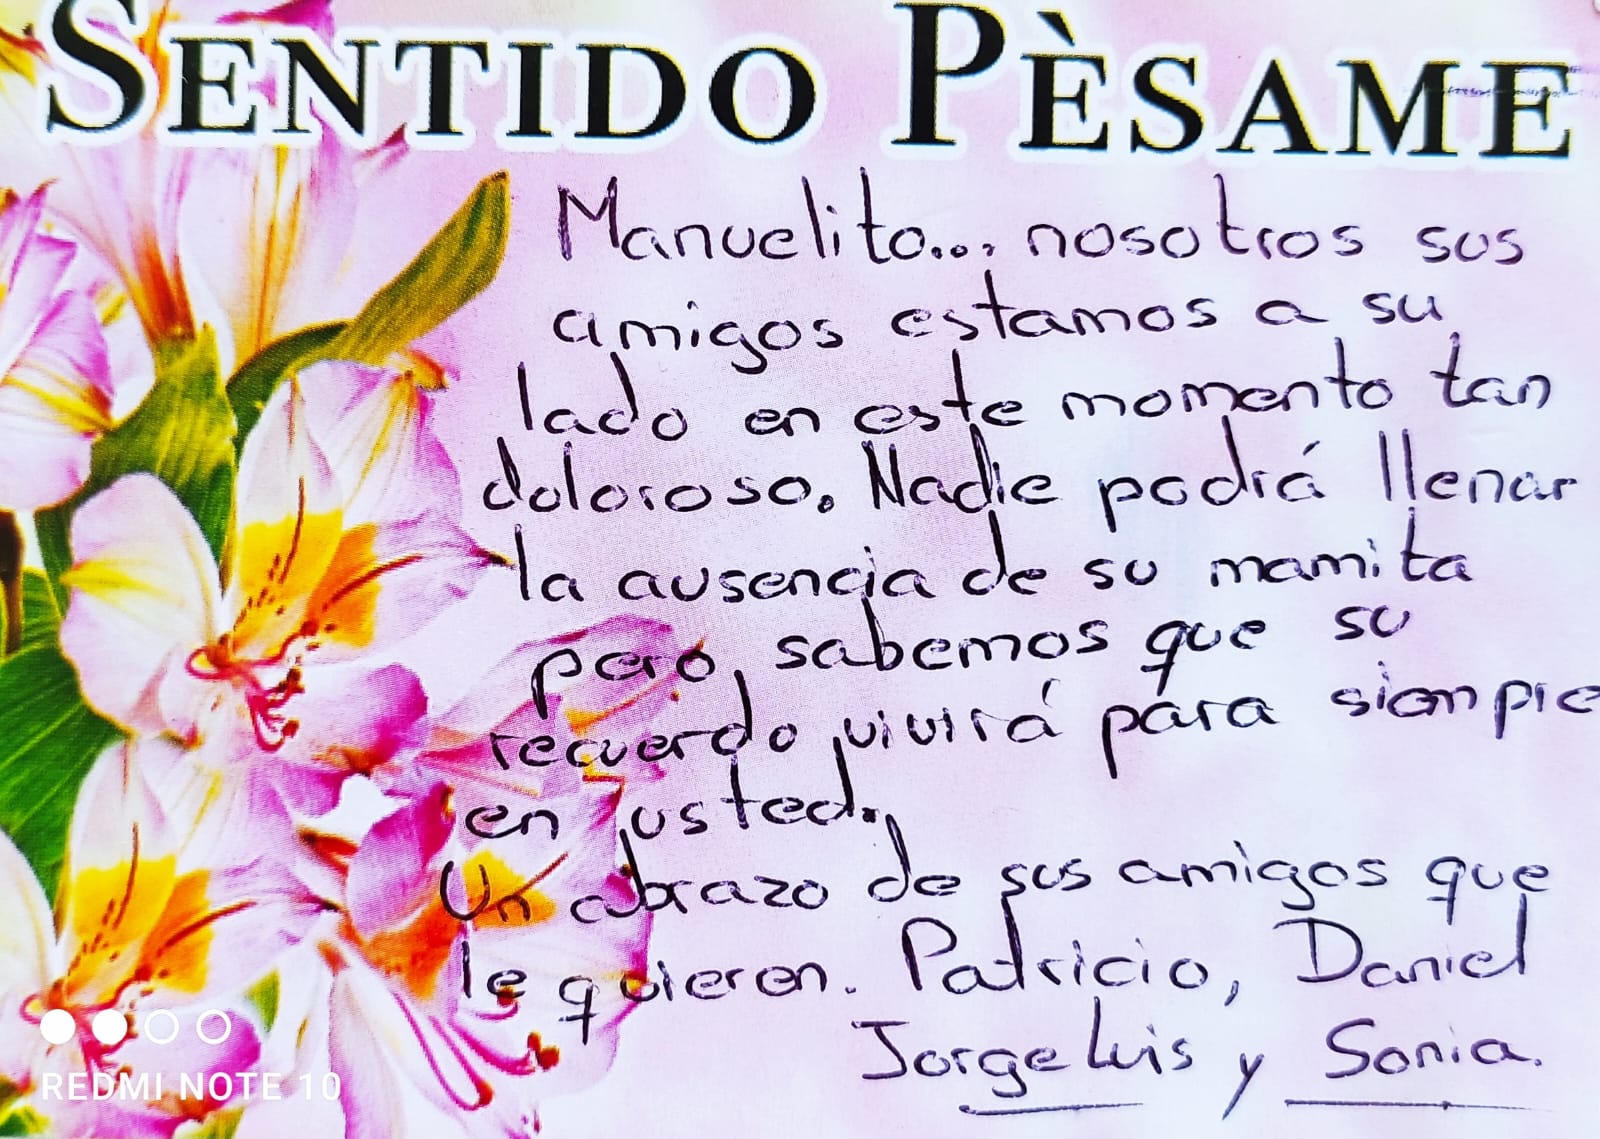 SENTIDO PÈSAME
Manuelito... nosotros sus
amigos estamos a su
lado en este momento tan
doloroso. Nadie podrá llenar
la ausencia de su mamita
pero sabemos que su
recuerdo vivirá para siempre
en usted.
Un abrazo de sus amigos que
le quieren. Patricio, Daniel
Jorge Luis y Sonia.
REDMI NOTE 10